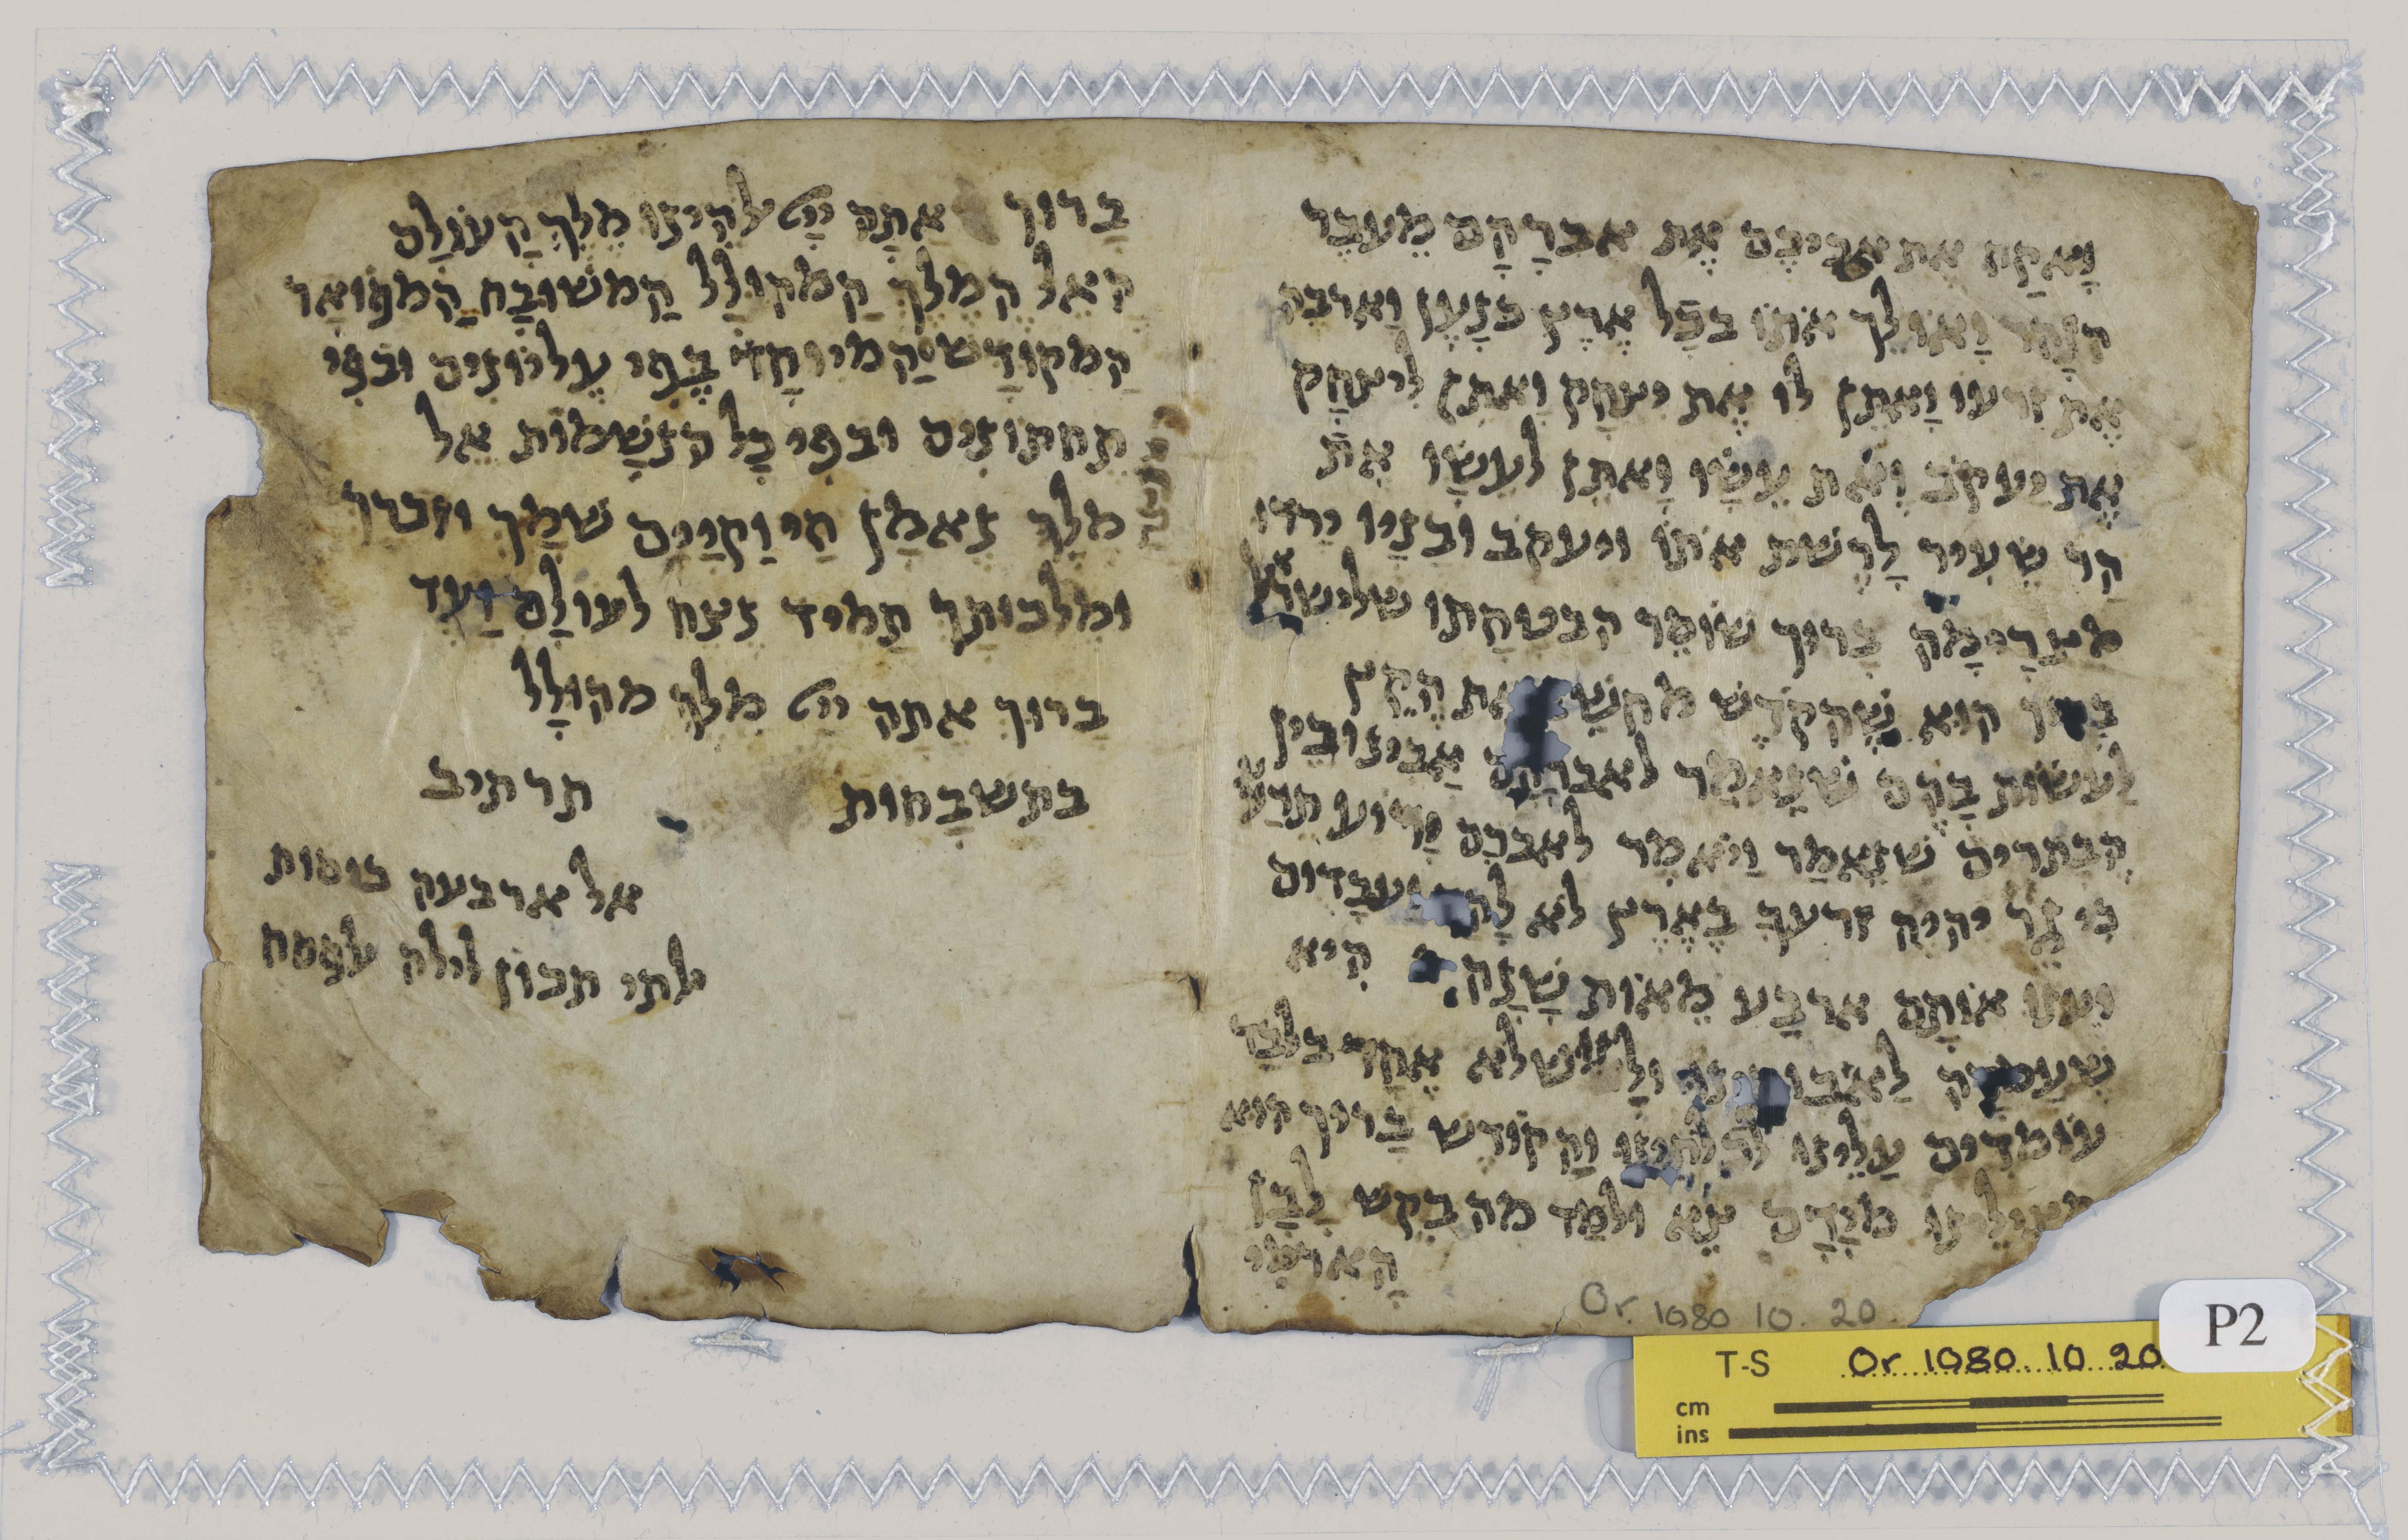 וָאֶקַח את אביכֶם אֶת אברָהָם מֵעֵבֶר
הנָהָר וָאולֵך אֹתֹו בכָל אֶרֶץ כנָעַן וָארבֶה
אֶת זרעו וָאֶתֵן לו אֶת יצחָק וָאתֵן ליצחָק
אֶת יעקֹב וְאֶת עֵשָׂו וָאתֵן לעֵשָׂו אֶת
הַר שֵׂעִיר לָרֶשֶׁת אֹתֹו ויעקֹב ובנָיו ירדו
מצרָיֵמָה בָרוך שׁומֵר הבטָחָתו שלישראל
בָרוך הוא שֶׁהקדֹשׁ מחשֵׁב את הַקֵץ
לַעשׂות כָהֶם שׁנֶאֱמַר לאברָהָם אָבִינו בֵין
הַבתרים שׁנֶאֱמַר וַיֹאמֶר לאברָם יָדועַ תֵדַע
כִי גֵר יהיֶה זרעֲך בְאֶרֶץ לֹא לָהֶם ועבָדום
וְענו אוֹתָם ארבַע מֵאֹות שָׁנָה הִיא
שֶׁעמדָה לַאבותינו ולָנו שלא אֶחָד בלבַד
עֹומדִים עָלֵינו לכלֹתֵינו וַהקודשׁ בָרוך הוא
מצִילֵינו מִיָדָם צֵא ולמַד מה בקֵשׁ לָבָן
הָארמִי
בָרוך אַתָה ייָ אלהֵינו מֶלֶך הַעולָם
הָאֵל המֶלֶך הַמהולָל הַמשׁובָח הַמפואָר
הַמקודָשׁ הַמיוחָד בְפִי עֶליונִים ובפִי
תַחתונִים ובפִי כָל הנשָׁמות אֵל
מלֶך נֶאמָן חַי וַקיַים שׁמָך וזכרך
ומלכותָך תָמיד נצח לעולָם וָעֶד
בָרוך אַתָה ייָ מלֶך מהולָל
בתשבָחות תרתיב
אל ארבעה כוסות
אלתי תכון לילה אלפסח